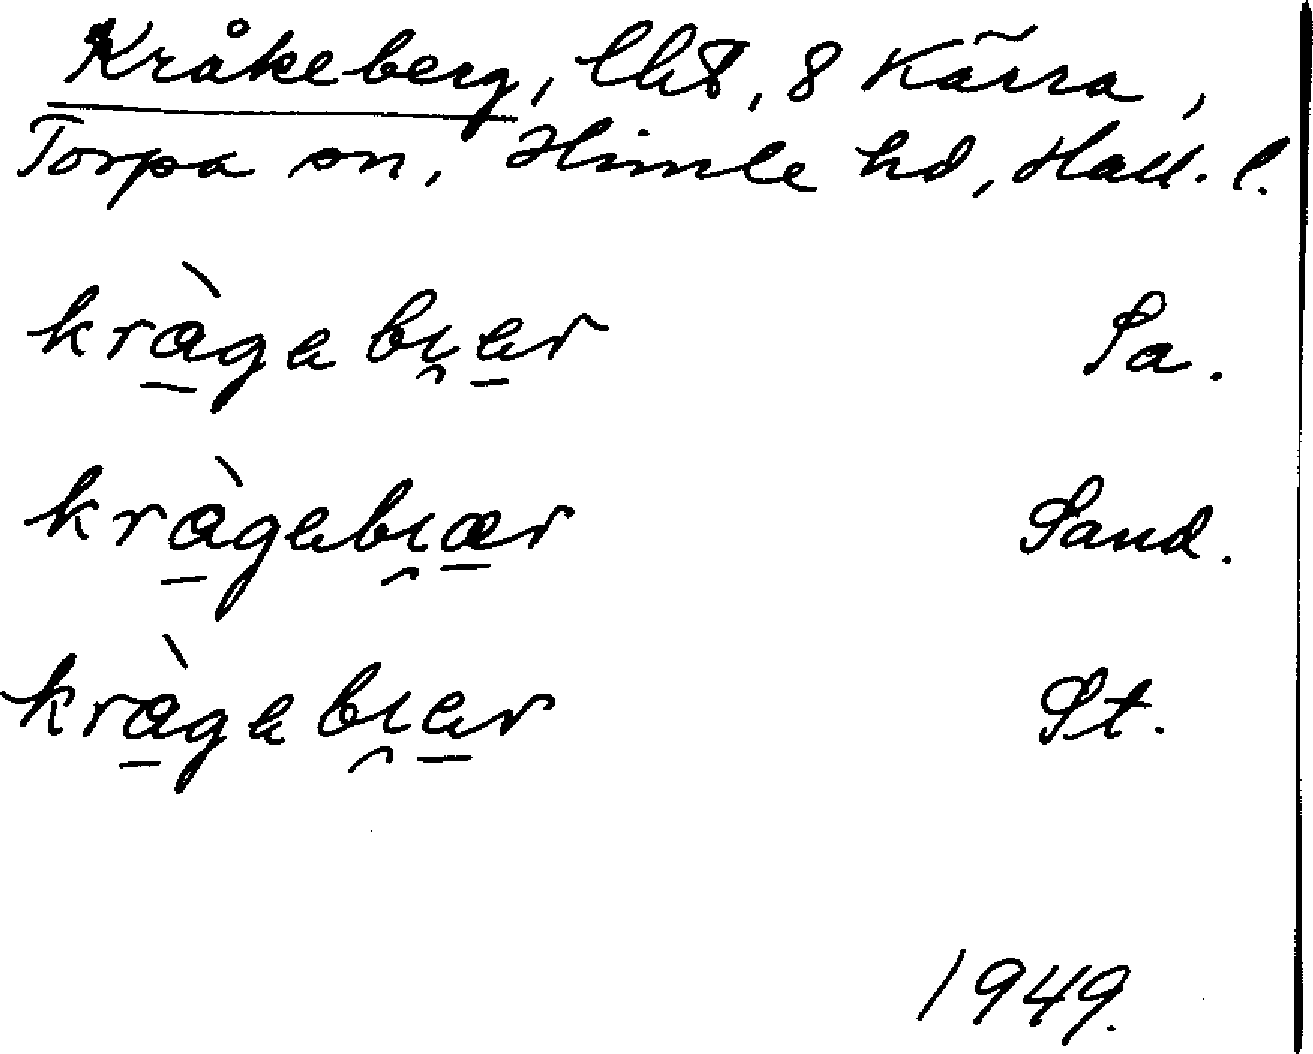 Kråkeberg, lht, 8 Kärra,
Torpa sn, Himle hd, Hall. l.
kràgabıar Sa.
kràgabıær Sand.
kràgabıar St.
1949.